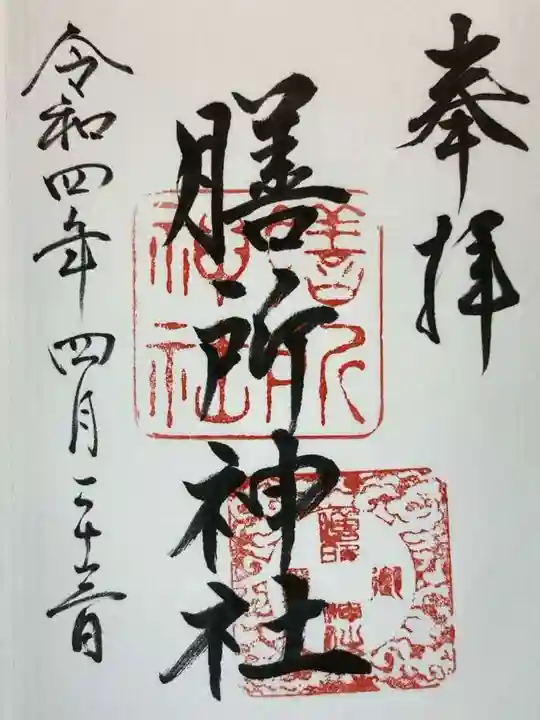 奉拝
膳所神社
膳所
神社
令和四年四月二十六日